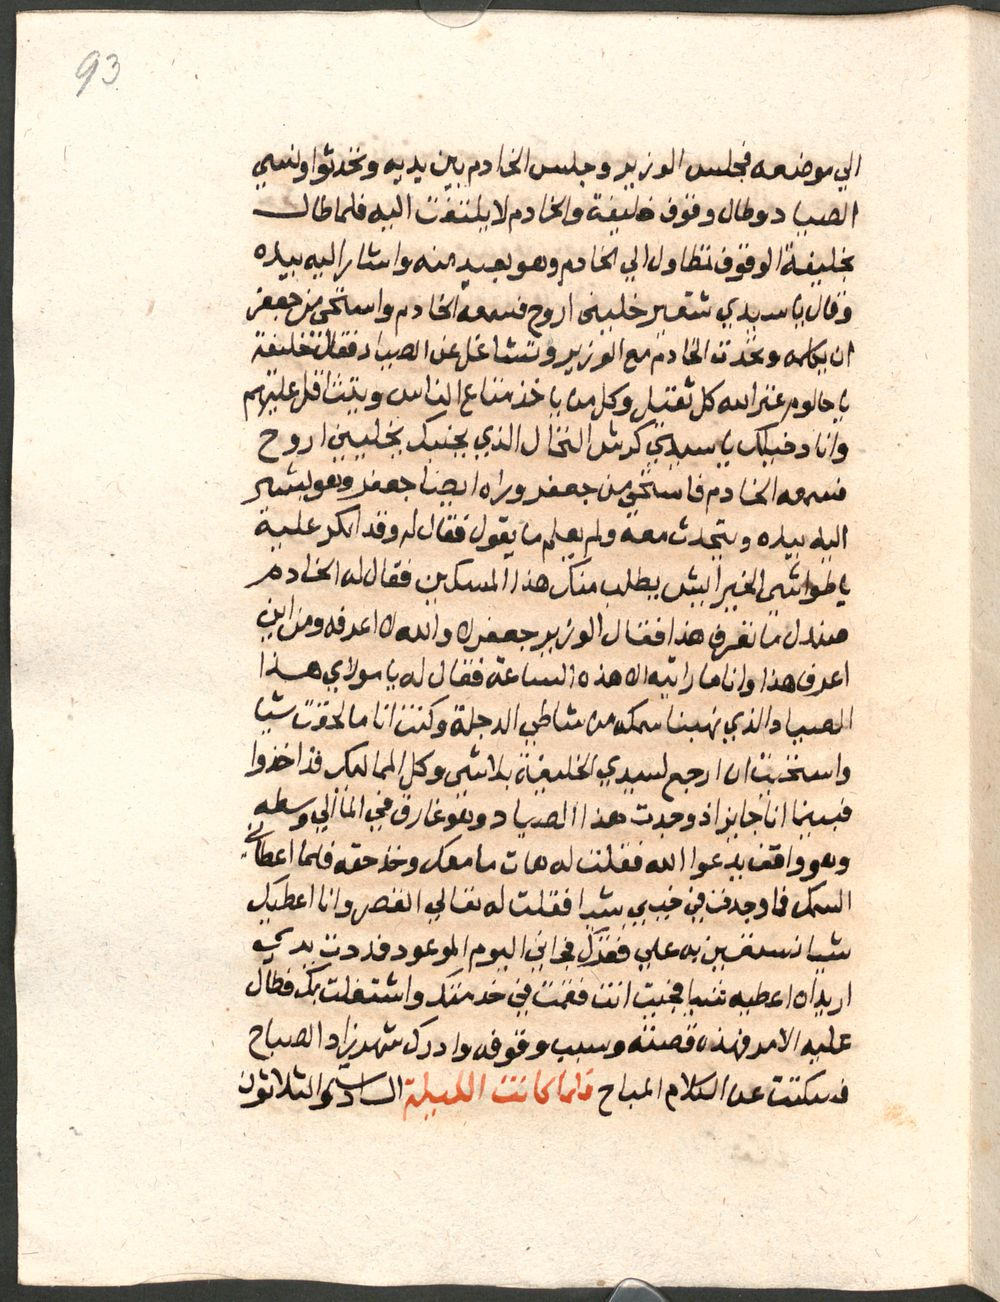 93
الي موضعه فجلس الوزير وجلس الخادم بين يديه وتحدثوا ونسي
الصياد وطال وقوف خليفة والخادم لا يلتفت اليه فلما طال
بخليفة الوقوف تطاول الي الخادم وهو بعيد منه واشار اليه بيده
وقال يا سيدي شقير خليني اروح فسمعه الخادم واستحي من جعفر
ان يكلمه وتحدث الخادم مع الوزير وتشاغل عن الصياد فقال خليفة
يا الله كل ثقيل وكل من ياخذ متاع الناس ويتثاقل عليهم
وانا دخيلك يا سيدي كرش النخال الذي بجنبك تخليني اروح
فسمعه الخادم فاستحي من جعفر وراه ايضا جعفر وهو يشير
اليه بيده ويتحدث معه ولم يعلم ما يقول فقال له وقد انكر عليه
يا طواشي الخير ايش يطلب منك هذا المسكين فقال له الخادم
صندل ما تعرف هذا فقال الوزير جعفر لا والله لا اعرفه ومن اين
اعرف هذا وانا ما رايته الا هذه الساعة فقال له يا مولاي هذا
الصياد الذي نهبنا سمكه من شاطي الدجلة وكنت انا ما لحقت شيا
واستحيت ان ارجع لسيدي الخليفة بلا شي وكل المماليك قد اخذوا
فبينما انا جايز اذ وجدت هذا الصياد وهو غارق في الما الي وسطه
وهو واقف يدعوا الله فقلت له هات ما معك وخذ حقه فلما اعطاني
السمك فما وجدت في جيبي شيا فقلت له تعالي القصر وانا اعطيك
شيا تستعين به علي فقرك فجاني اليوم الموعود فمددت يدي
اريد ان اعطيه شيا فجيت انت فقمت في خدمتك واشتغلت بك فطال
عليه الامر فهذه قصته وسبب وقوفه وادرك شهرزاد الصباح
فسكتت عن الكلام المباح فلما كانت الليلة السادس والثلاثون